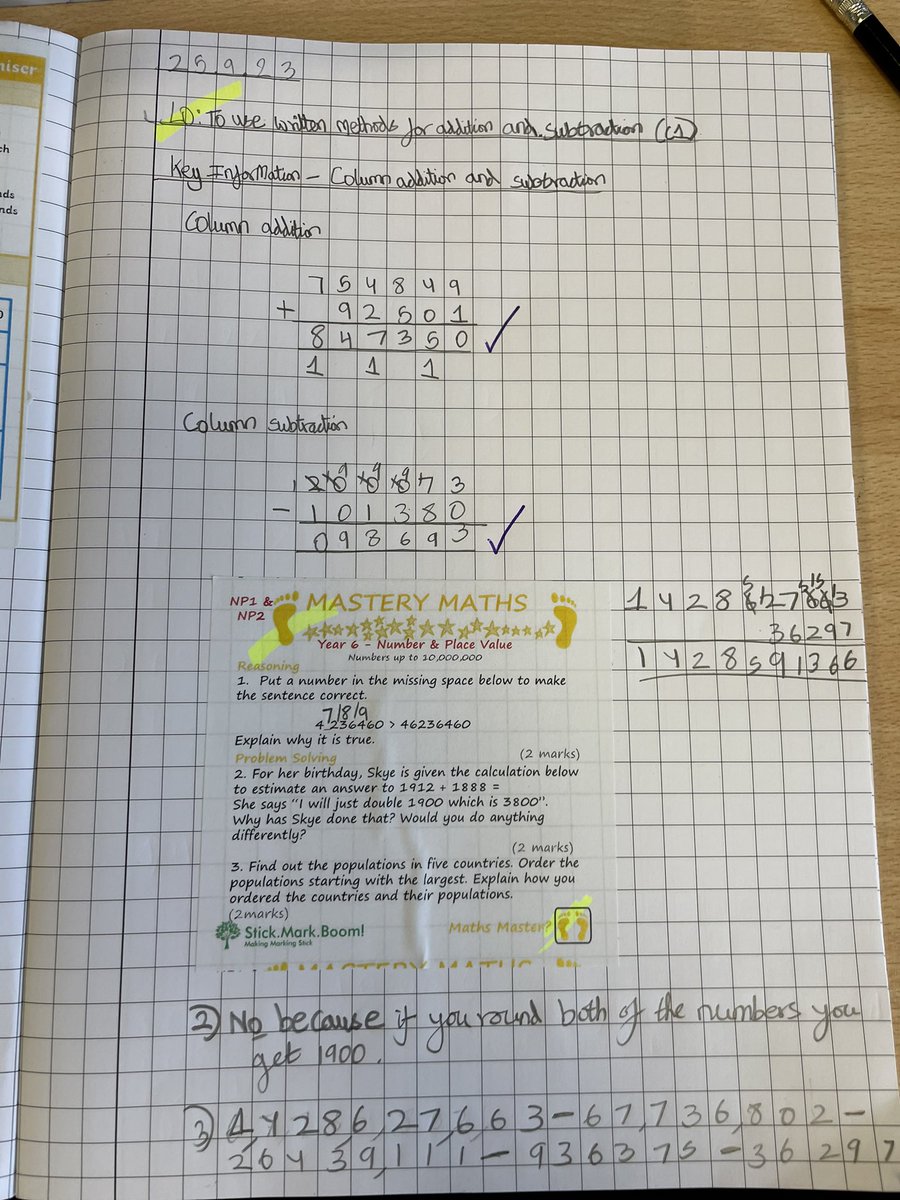 25.9.23
LO: To use written methods for addition and subtraction (C1)
Key Information - Column addition and subtraction
Column addition
754849
+ 92501
847350
1 1 1
Column subtraction
- 101380
098693
36297
1428591366
NP1 &
NP2
MASTERY MATHS
Year 6 - Number & Place Value
Numbers up to 10,000,000
Reasoning
1. Put a number in the missing space below to make
the sentence correct.
7/8/9
4 236460 > 46236460
Explain why it is true.
(2 marks)
Problem Solving
2. For her birthday, Skye is given the calculation below
to estimate an answer to 1912 + 1888 =
She says "I will just double 1900 which is 3800".
Why has Skye done that? Would you do anything
differently?
(2 marks)
3. Find out the populations in five countries. Order the
populations starting with the largest. Explain how you
ordered the countries and their populations.
(2marks)
Stick.Mark.Boom!
Making Marking Stick
Maths Master?
2) No because if you round both of the numbers you
get 1900.
3) 1,4286,27,6,63-67,736,802-
26439,111-936375-36297
niser
ch
nds
nds